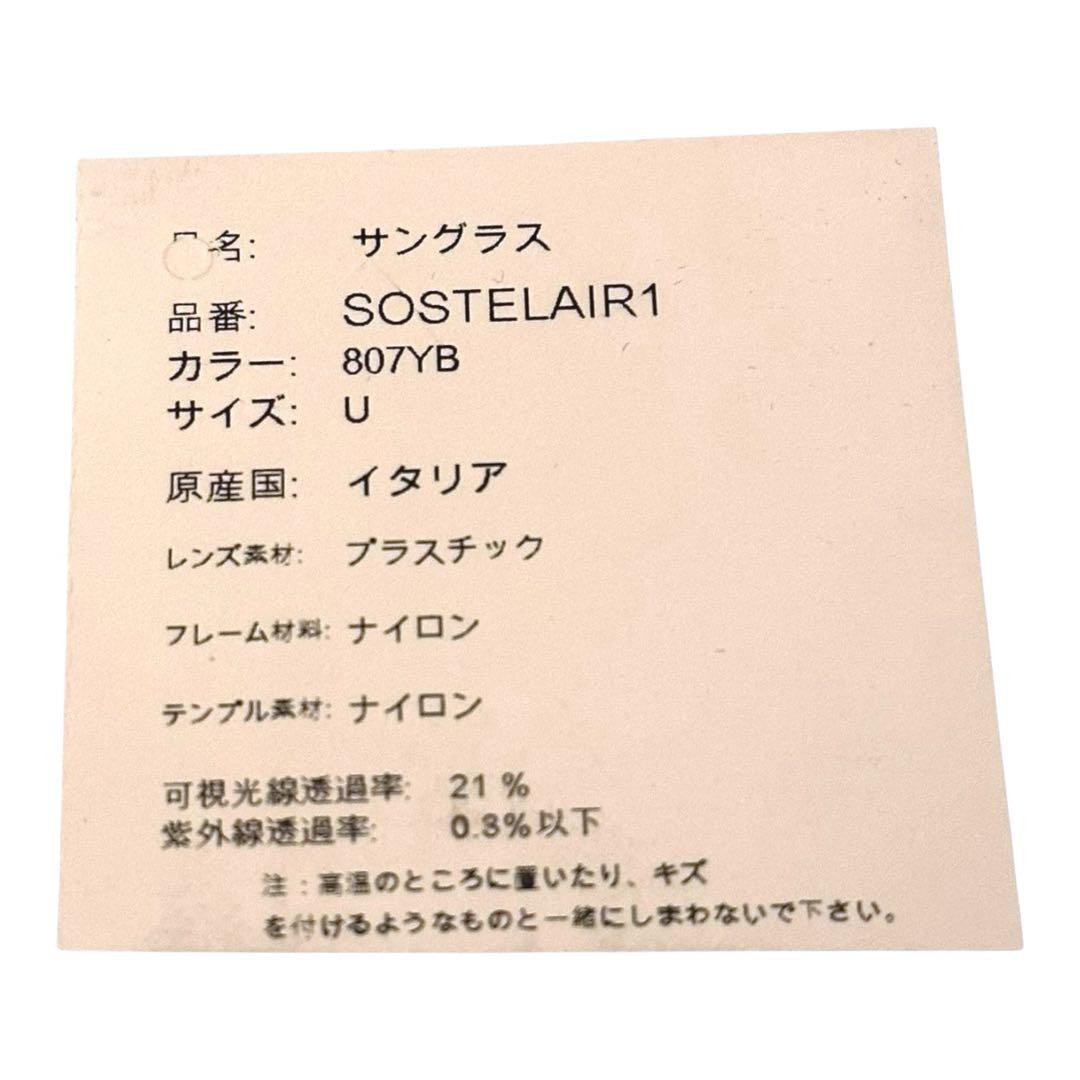 品名: サングラス
品番: SOSTELAIR1
カラー: 807YB
サイズ: U
原産国: イタリア
レンズ素材: プラスチック
フレーム材料: ナイロン
テンプル素材: ナイロン
可視光線透過率: 21 %
紫外線透過率: 0.3%以下
注：高温のところに置いたり、キズ
を付けるようなものと一緒にしまわないで下さい。